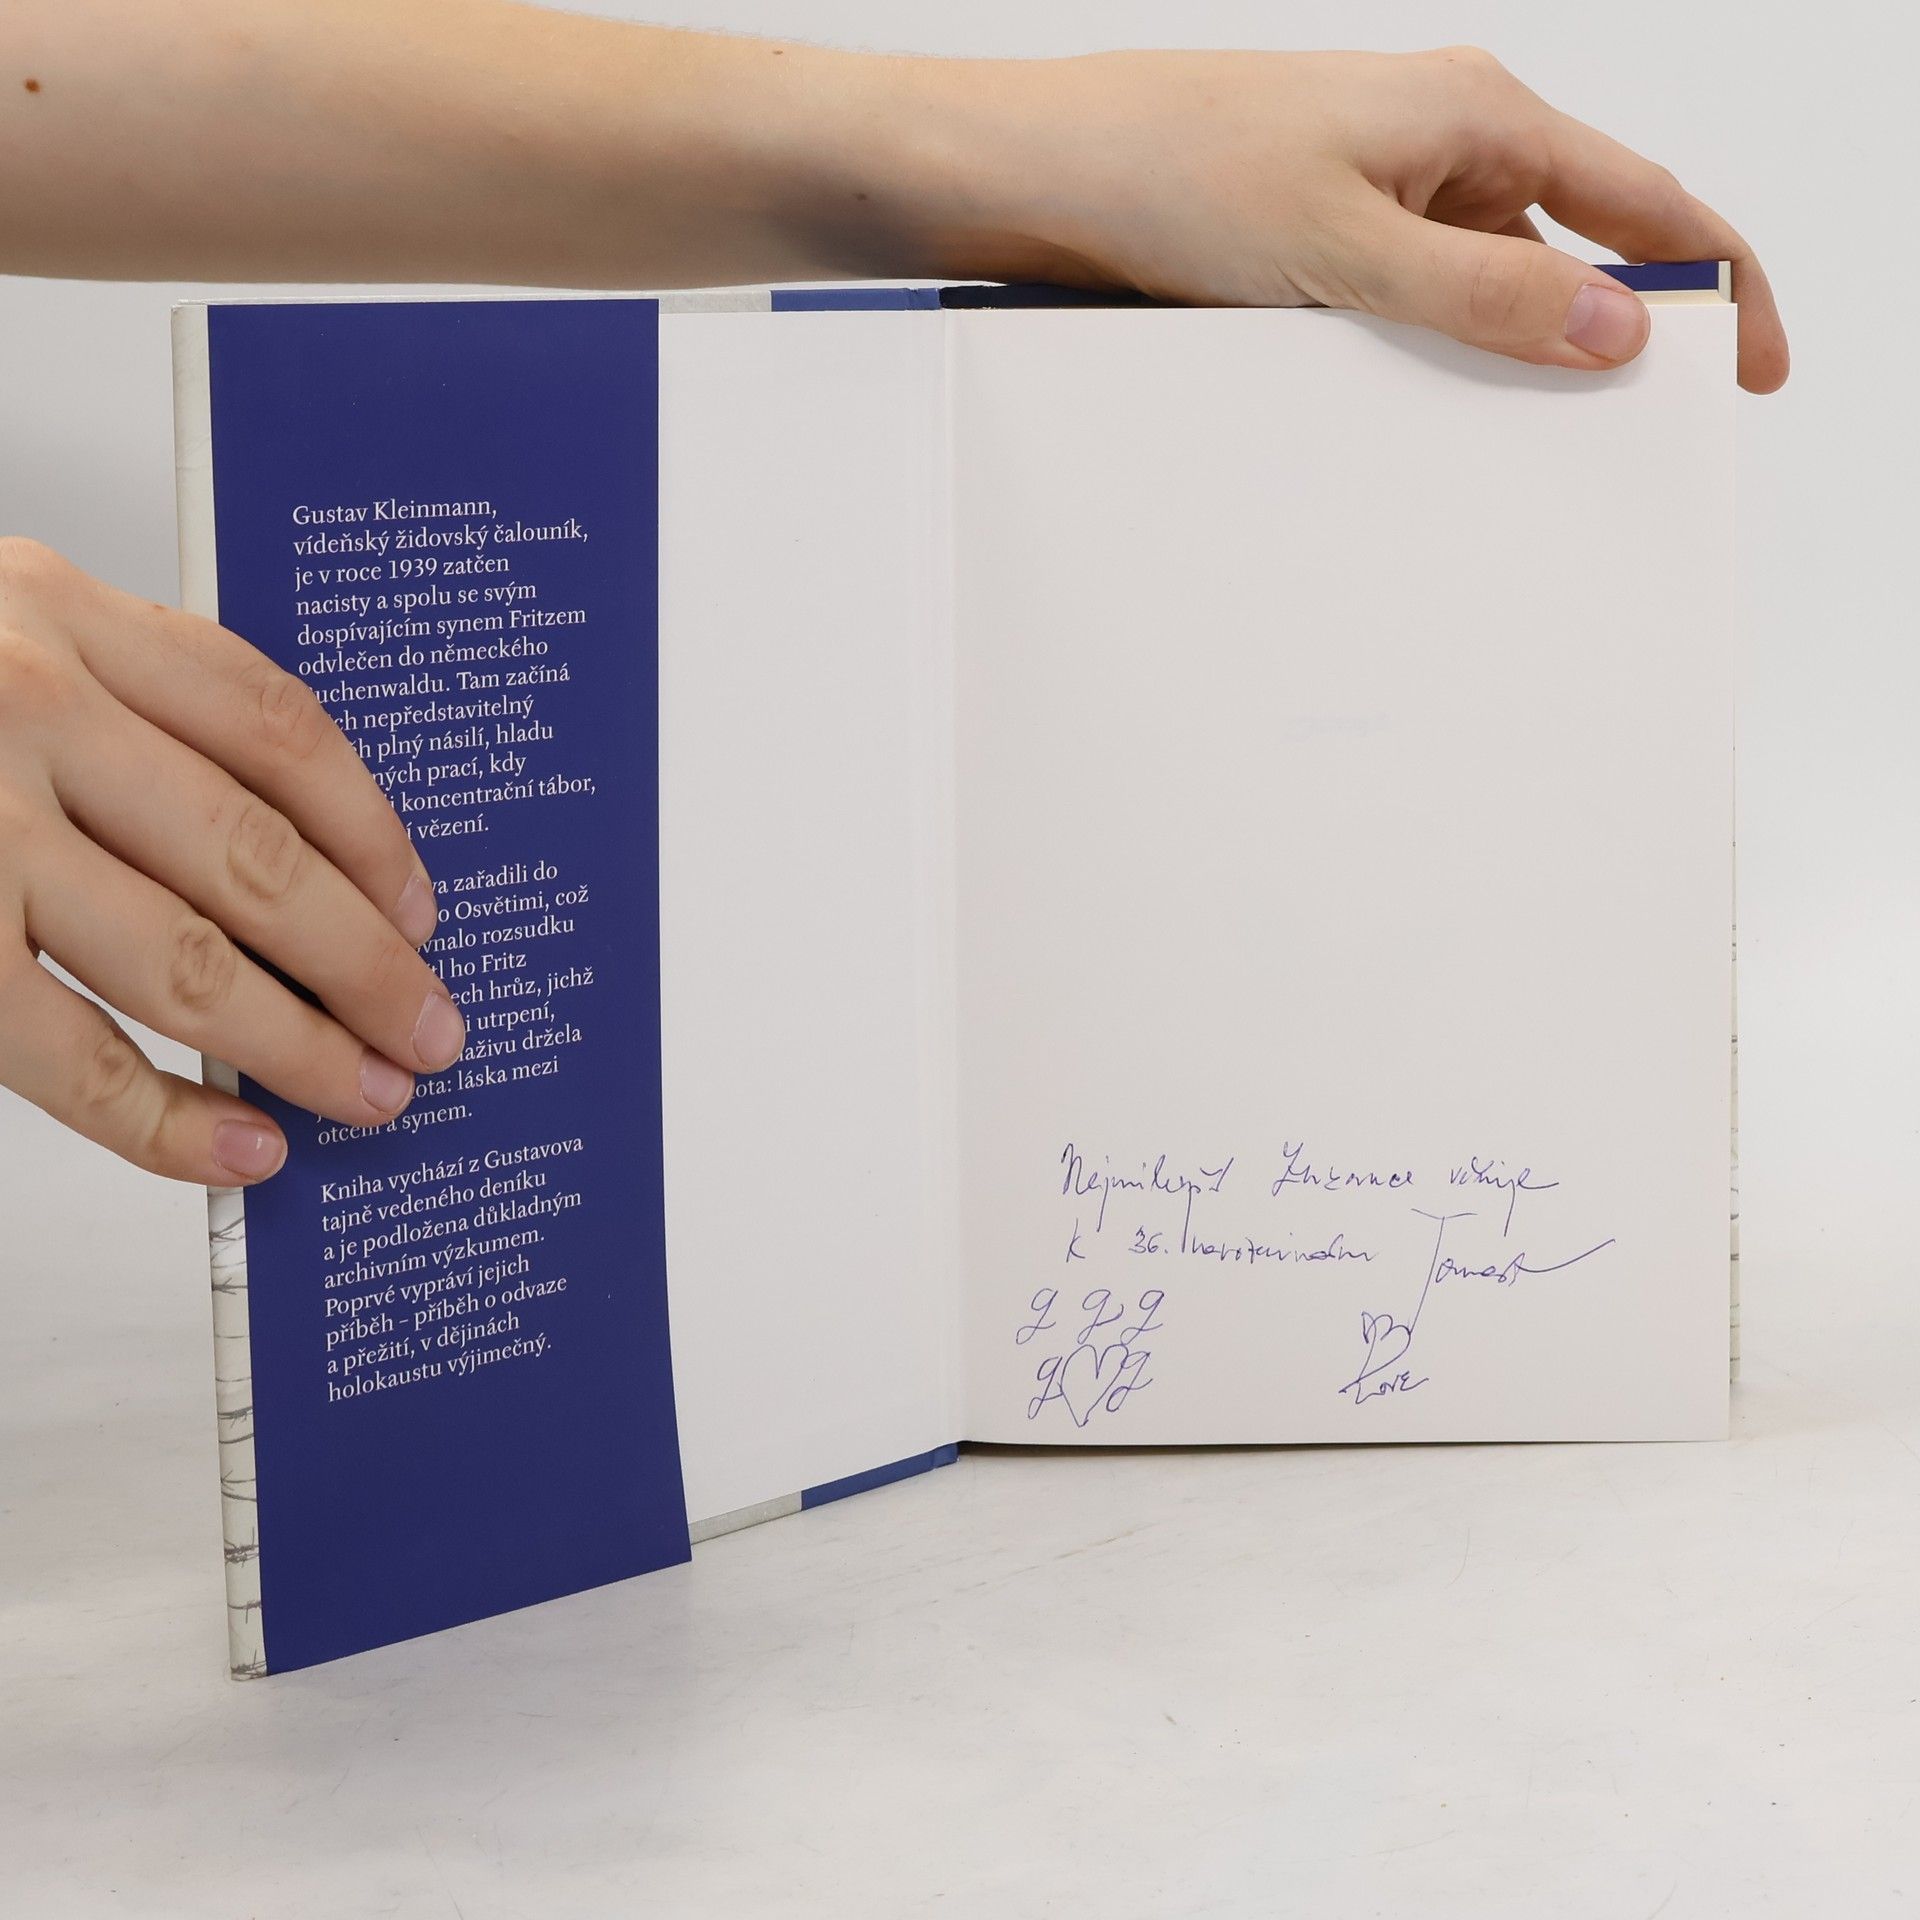 Gustav Kleinmann,
vídeňský židovský čalouník,
je v roce 1939 zatčen
nacisty a spolu se svým
dospívajícím synem Fritzem
odvlečen do německého
uchenwaldu. Tam začíná
ch nepředstavitelný
h plný násilí, hladu
ných prací, kdy
i koncentrační tábor,
í vězení.
va zařadili do
o Osvětimi, což
vnalo rozsudku
tl ho Fritz
ech hrůz, jichž
i utrpení,
aživu držela
ota: láska mezi
otcem a synem.
Kniha vychází z Gustavova
tajně vedeného deníku
a je podložena důkladným
archivním výzkumem.
Poprvé vypráví jejich
příběh – příběh o odvaze
a přežití, v dějinách
holokaustu výjimečný.
Nejmilejší Zuzance věnuje
k 36. narozeninám Tomáš
Love